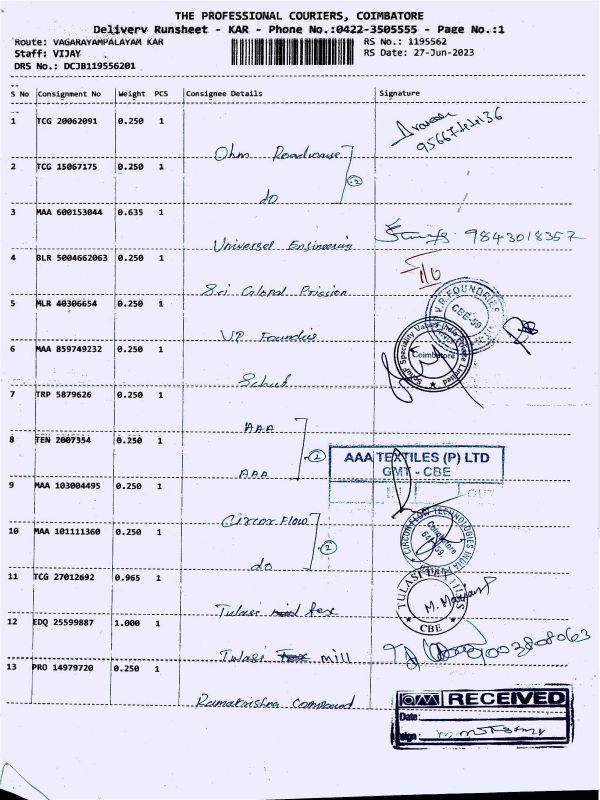 THE PROFESSIONAL COURIERS, COIMBATORE
Delivery Runsheet - KAR - Phone No.:0422-3505555 - Page No.:1
Route: VAGARAYAMPALAYAM KAR
RS No.: 1195562
Staff: VIJAY
RS Date: 27-Jun-2023
DRS No.: DCJB119556201
S No Consignment No Weight PCS Consignee Details Signature
1 TCG 20062091 0.250 1
9566744436
Ohm Roadways
2 TCG 15067175 0.250 1
2
do
3 MAA 600153044 0.635 1
Universel Engineering
9843018357
4 BLR 5004662063 0.250 1
Sri
5 MLR 40306654 0.250 1
V.R. FOUNDRIES
CBE-59
VR Foundies
6 MAA 859749232 0.250 1
Schuf Speciality Valves India Private Limited
Coimbatore
Schuf
7 TRP 5879626 0.250 1
AAA
8 TEN 2007354 0.250 1
2
AAA TEXTILES (P) LTD
GMT - CBE
AAA
9 MAA 103004495 0.250 1
IN OUT
Circor Flow
10 MAA 101111360 0.250 1
2
CIRCOR FLOW TECHNOLOGIES INDIA
Coimbatore
641 059
do
11 TCG 27012692 0.965 1
Tulasi Tex
TULASI
CBE
12 EDQ 25599887 1.000 1
Tulasi mill
13 PRO 14979720 0.250 1
Ramakrishna
RECEIVED
Date:
Sign: